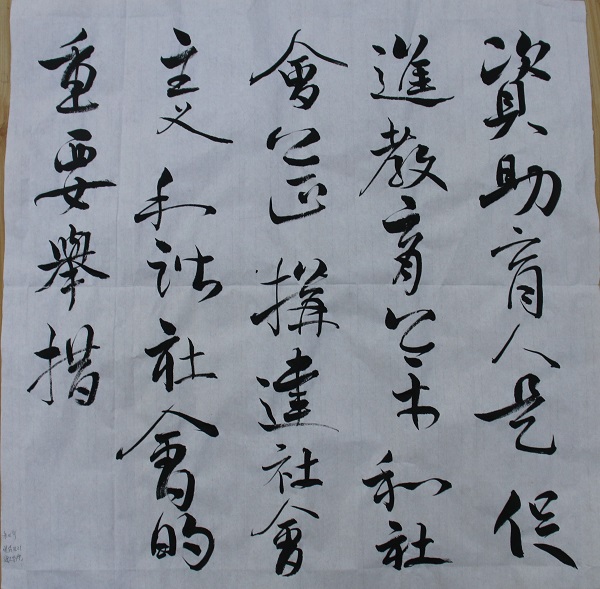 資助育人是促
進教育公平和社
會公正構建社會
主义和諧社會的
重要舉措